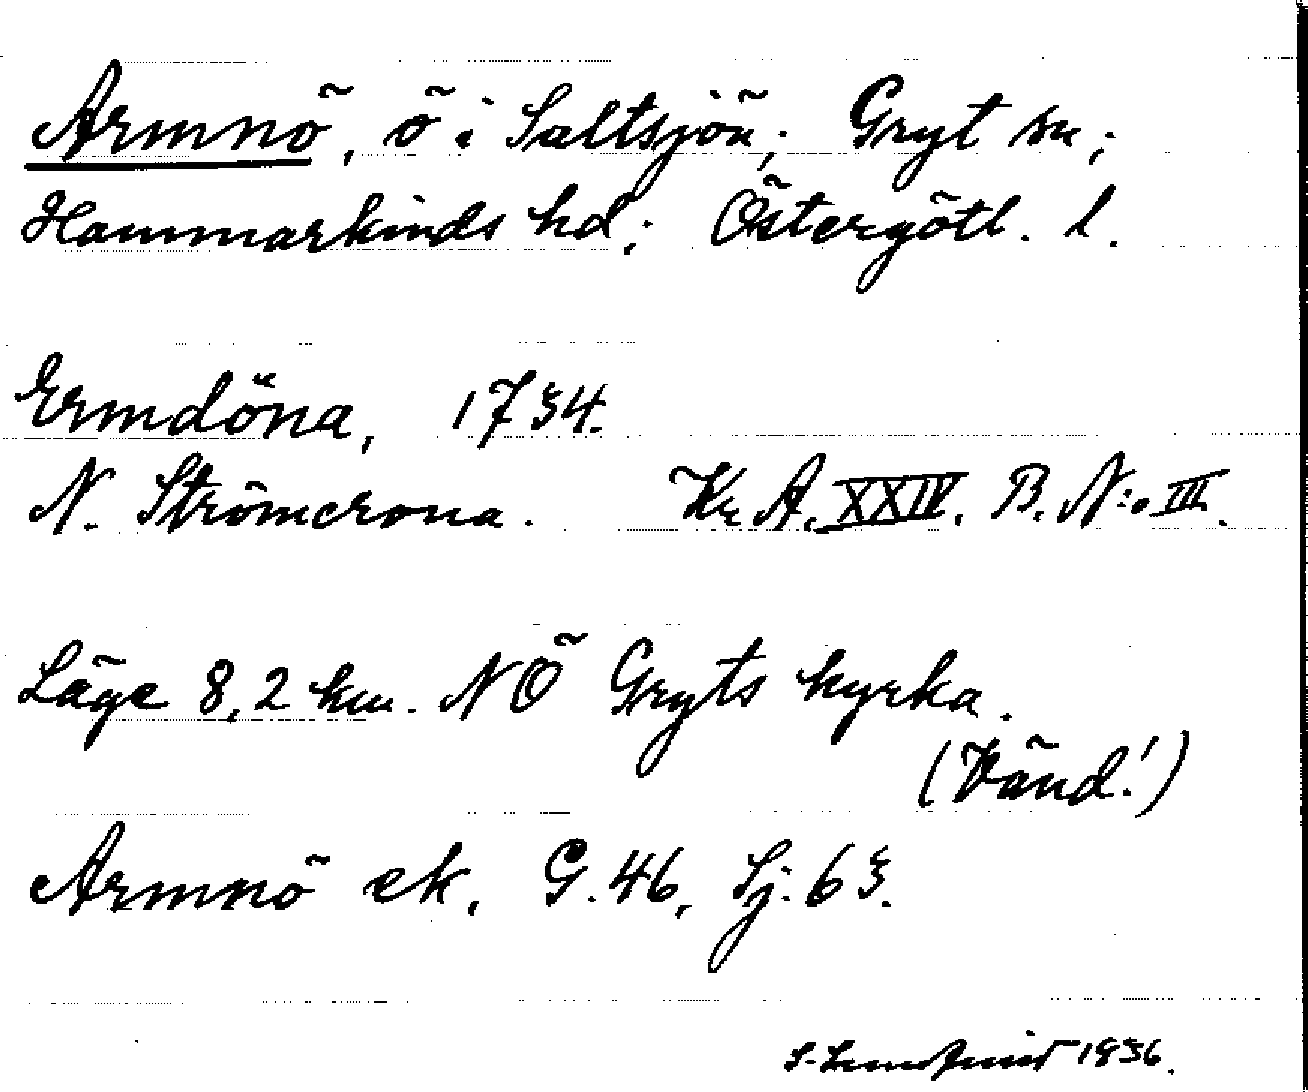 Armnö, ö i Saltsjön; Gryt sn;
Hammarkinds hd; Östergötl. l.
Ermdöna, 1734.
N. Strömcrona. Kr. A. XXIV. B. N:o III.
Läge 8,2 km. NÖ Gryts kyrka.
(Vänd!)
Armnö ek. G. 46, Sj. 63.
S. Lundqvist 1936.